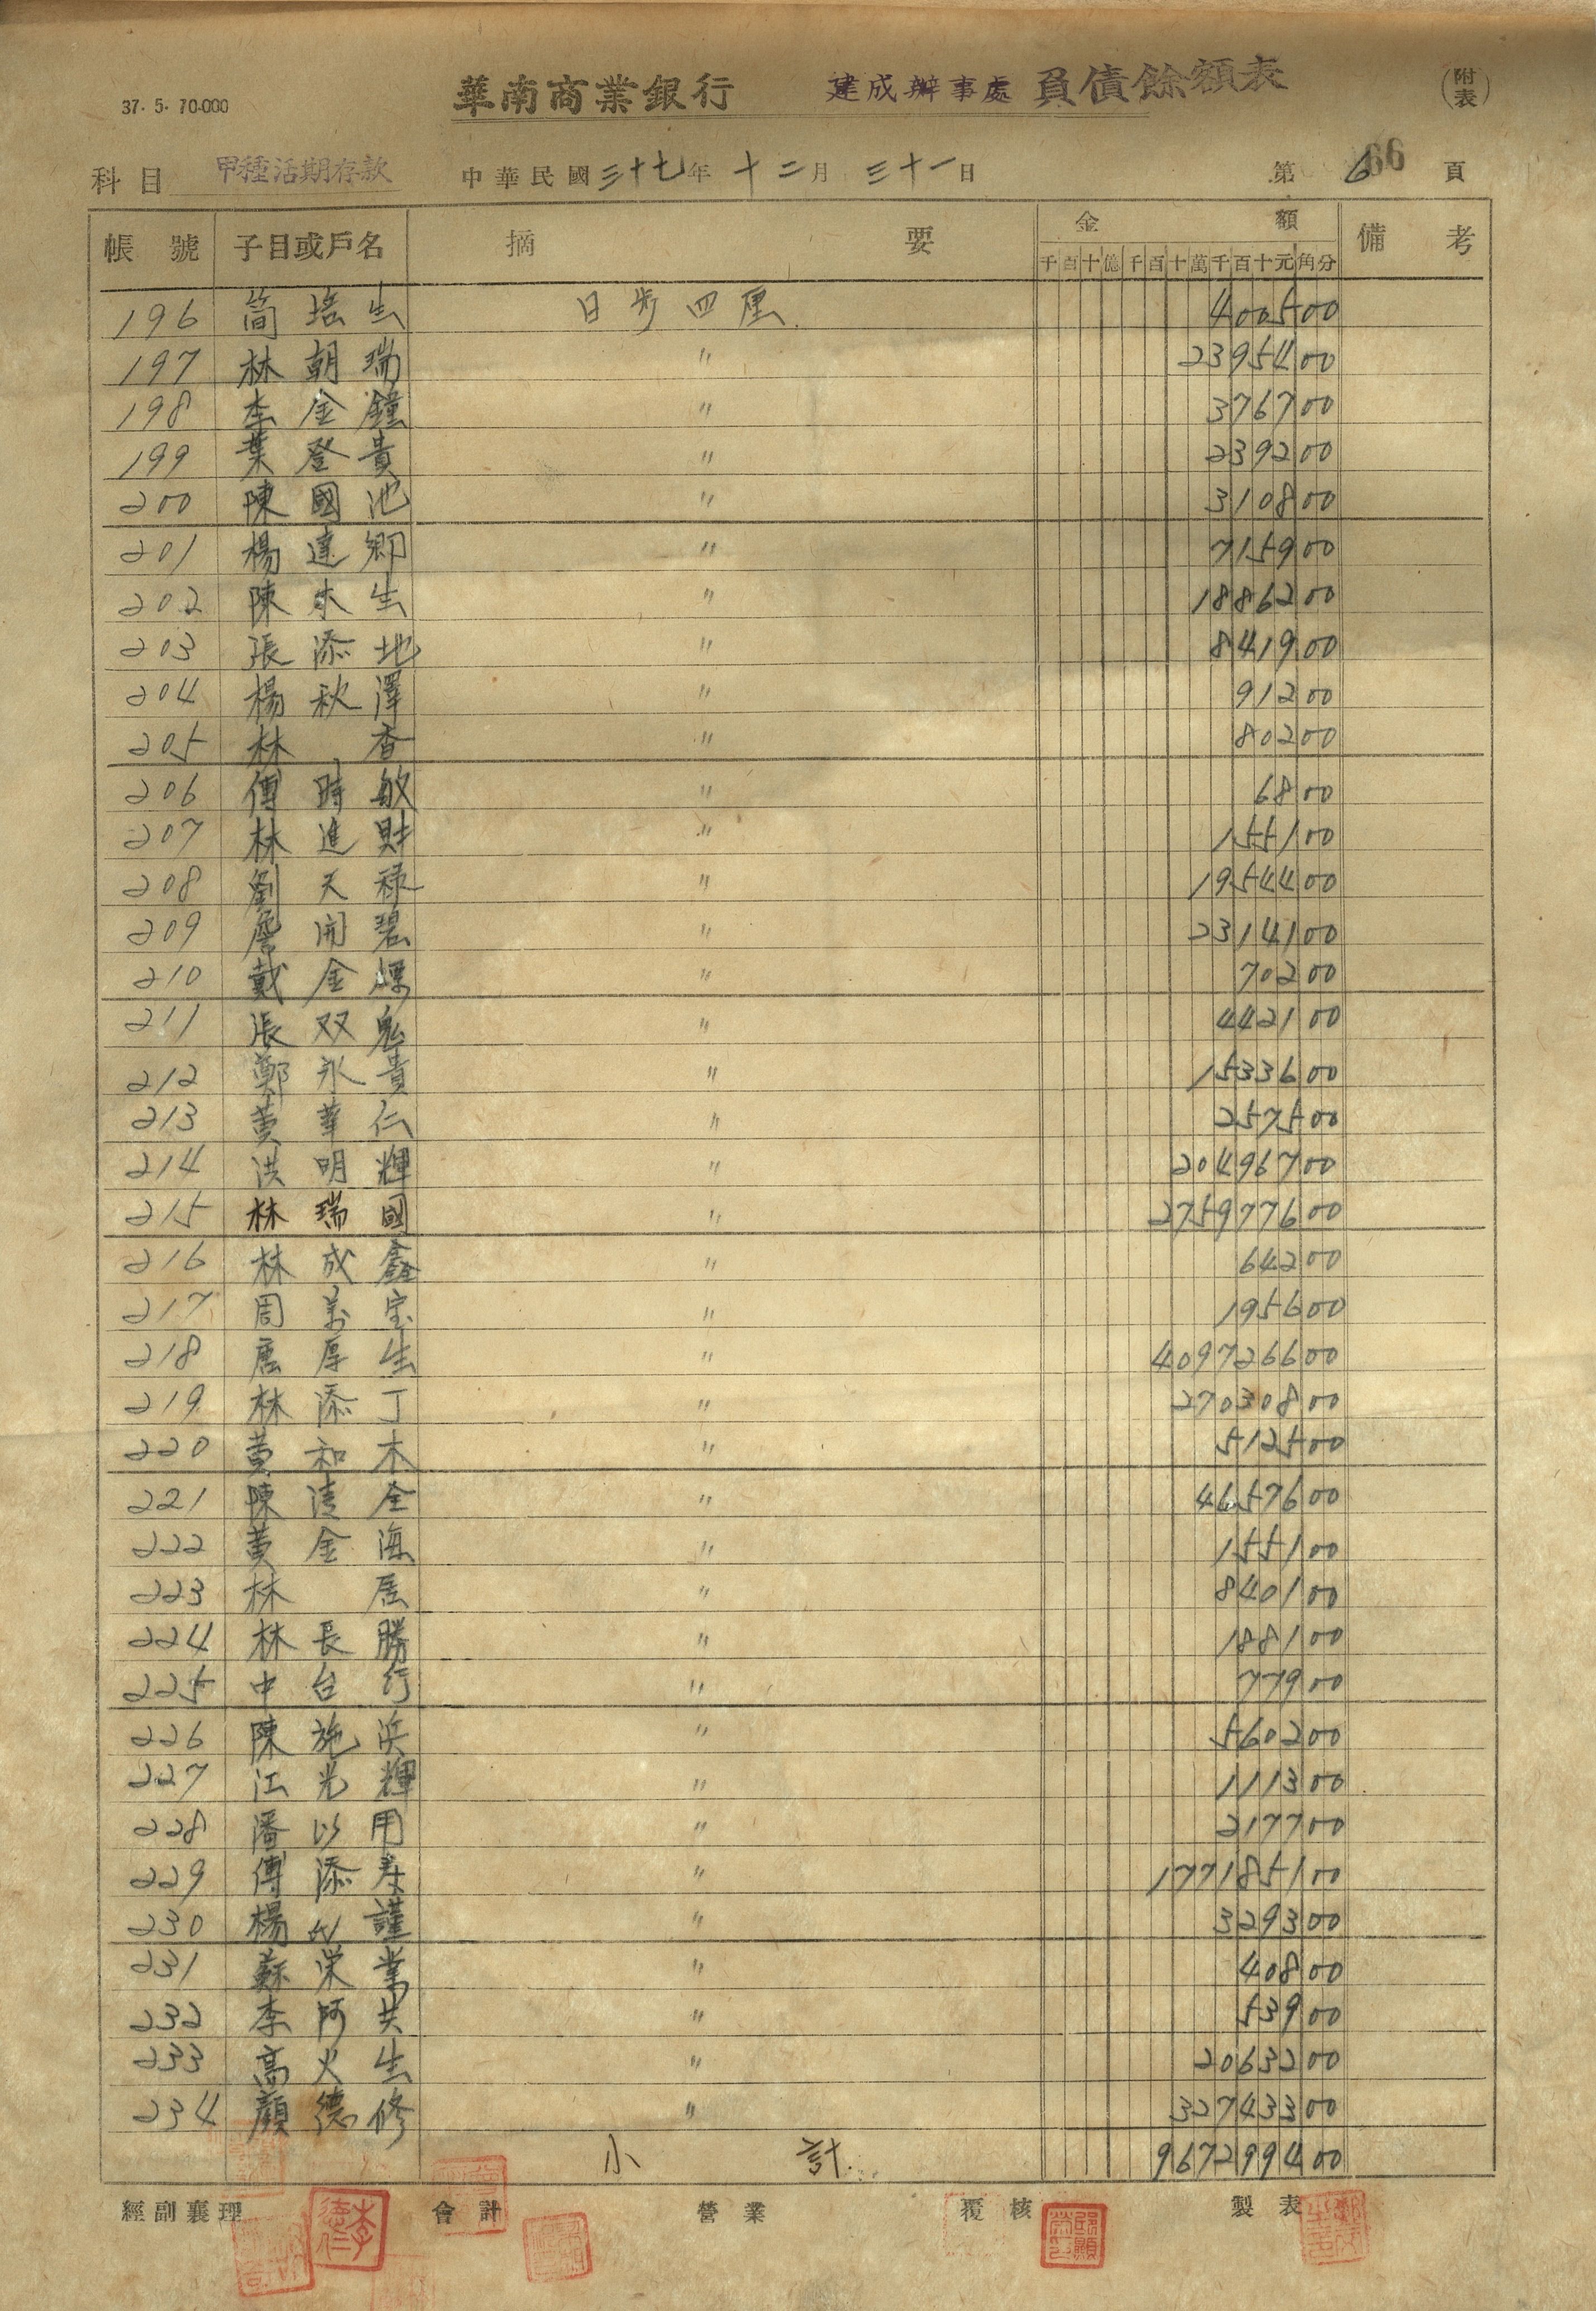 37. 5. 70.000 華南商業銀行 建成辦事處 負債餘額表 (附表)
科目 甲種活期存款 中華民國三十七年十二月三十一日 第 6 66 頁
帳號 子目或戶名 摘要 金額 備考
千百十億千百十萬千百十元角分
196 簡培生 日步四厘 400500
197 林朝瑞 〃 2395400
198 李金鐘 〃 376700
199 葉登貴 〃 239200
200 陳國池 〃 310800
201 楊達卿 〃 715900
202 陳木生 〃 1886200
203 張添地 〃 841900
204 楊秋澤 〃 91200
205 林香 〃 80200
206 傅時敏 〃 6800
207 林進財 〃 155100
208 劉天祿 〃 1954400
209 詹開碧 〃 2314100
210 戴金 〃 70200
211 張双鬼 〃 442100
212 鄭永貴 〃 1533600
213 黃華仁 〃 257500
214 洪明輝 〃 20496700
215 林瑞國 〃 275977600
216 林成鑫 〃 64200
217 周萬宝 〃 195600
218 唐厚生 〃 409726600
219 林添丁 〃 27030800
220 黃和木 〃 512500
221 陳清全 〃 4657600
222 黃金海 〃 155100
223 林居 〃 840100
224 林長勝 〃 188100
225 中台行 〃 77900
226 陳施浜 〃 560200
227 江光輝 〃 111300
228 潘以用 〃 217700
229 傅添寿 〃 177185100
230 楊以謹 〃 329300
231 蘇栄業 〃 40800
232 李阿共 〃 53900
233 高火生 〃 2063200
234 顏德修 〃 32743300
小計 967299400
經副襄理 會計 營業 覆核 製表
李德仁